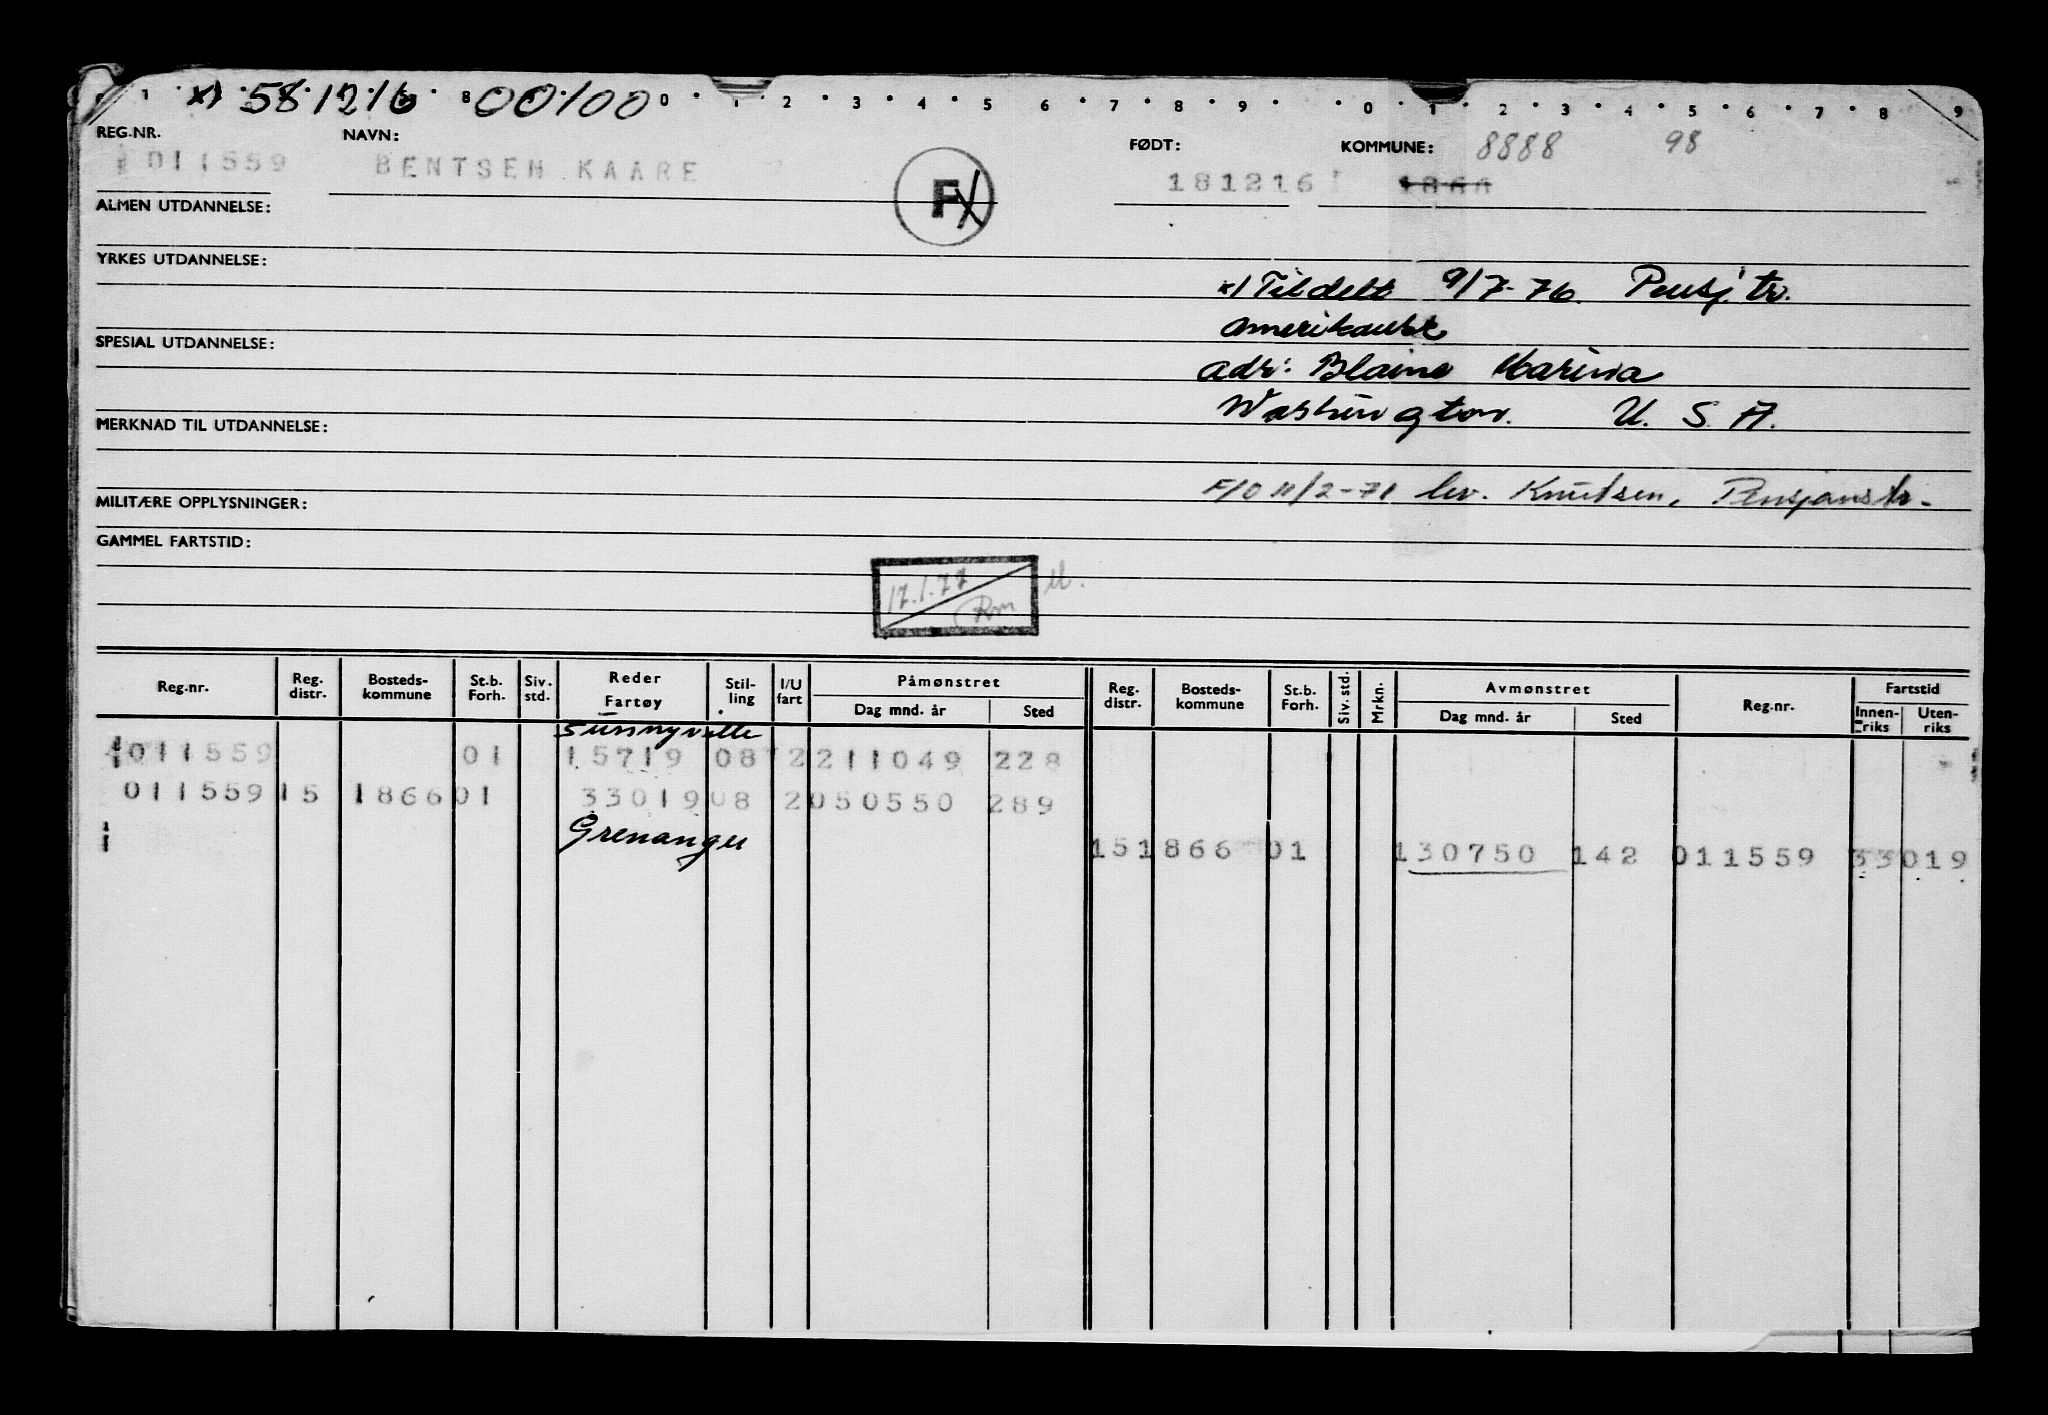 *) 581216 00100
1 8 0 1 2 3 4 5 6 7 8 9 0 1 2 3 4 5 6 7 8 9
REG.NR. NAVN: FØDT: KOMMUNE: 8888 98
011559 BENTSEN KAARE 181216 1 1866
F
ALMEN UTDANNELSE:
YRKES UTDANNELSE:
*) Tildelt 9/7-76. Pensj.tr.
amerikansk
SPESIAL UTDANNELSE:
adr: Blaine Marina
Washington. U. S. A.
MERKNAD TIL UTDANNELSE:
F/O 11/2-71 lev. Knutsen, Pensjonstr.
MILITÆRE OPPLYSNINGER:
GAMMEL FARTSTID:
17.1.77 Rm
Reg.nr. Reg. distr. Bosteds-kommune St.b. Forh. Siv. std. Reder Fartøy Stil-ling I/U fart Påmønstret Dag mnd. år Sted Reg. distr. Bosteds-kommune St.b. Forh. Siv. std. Mrkn. Avmønstret Dag mnd. år Sted Reg.nr. Fartstid Innen-riks Uten-riks
Sunnyville
011559 01 15719 08 2 211049 228
011559 15 1866 01 33019 08 2 050550 289
Grenanger
15 1866 01 130750 142 011559 33019